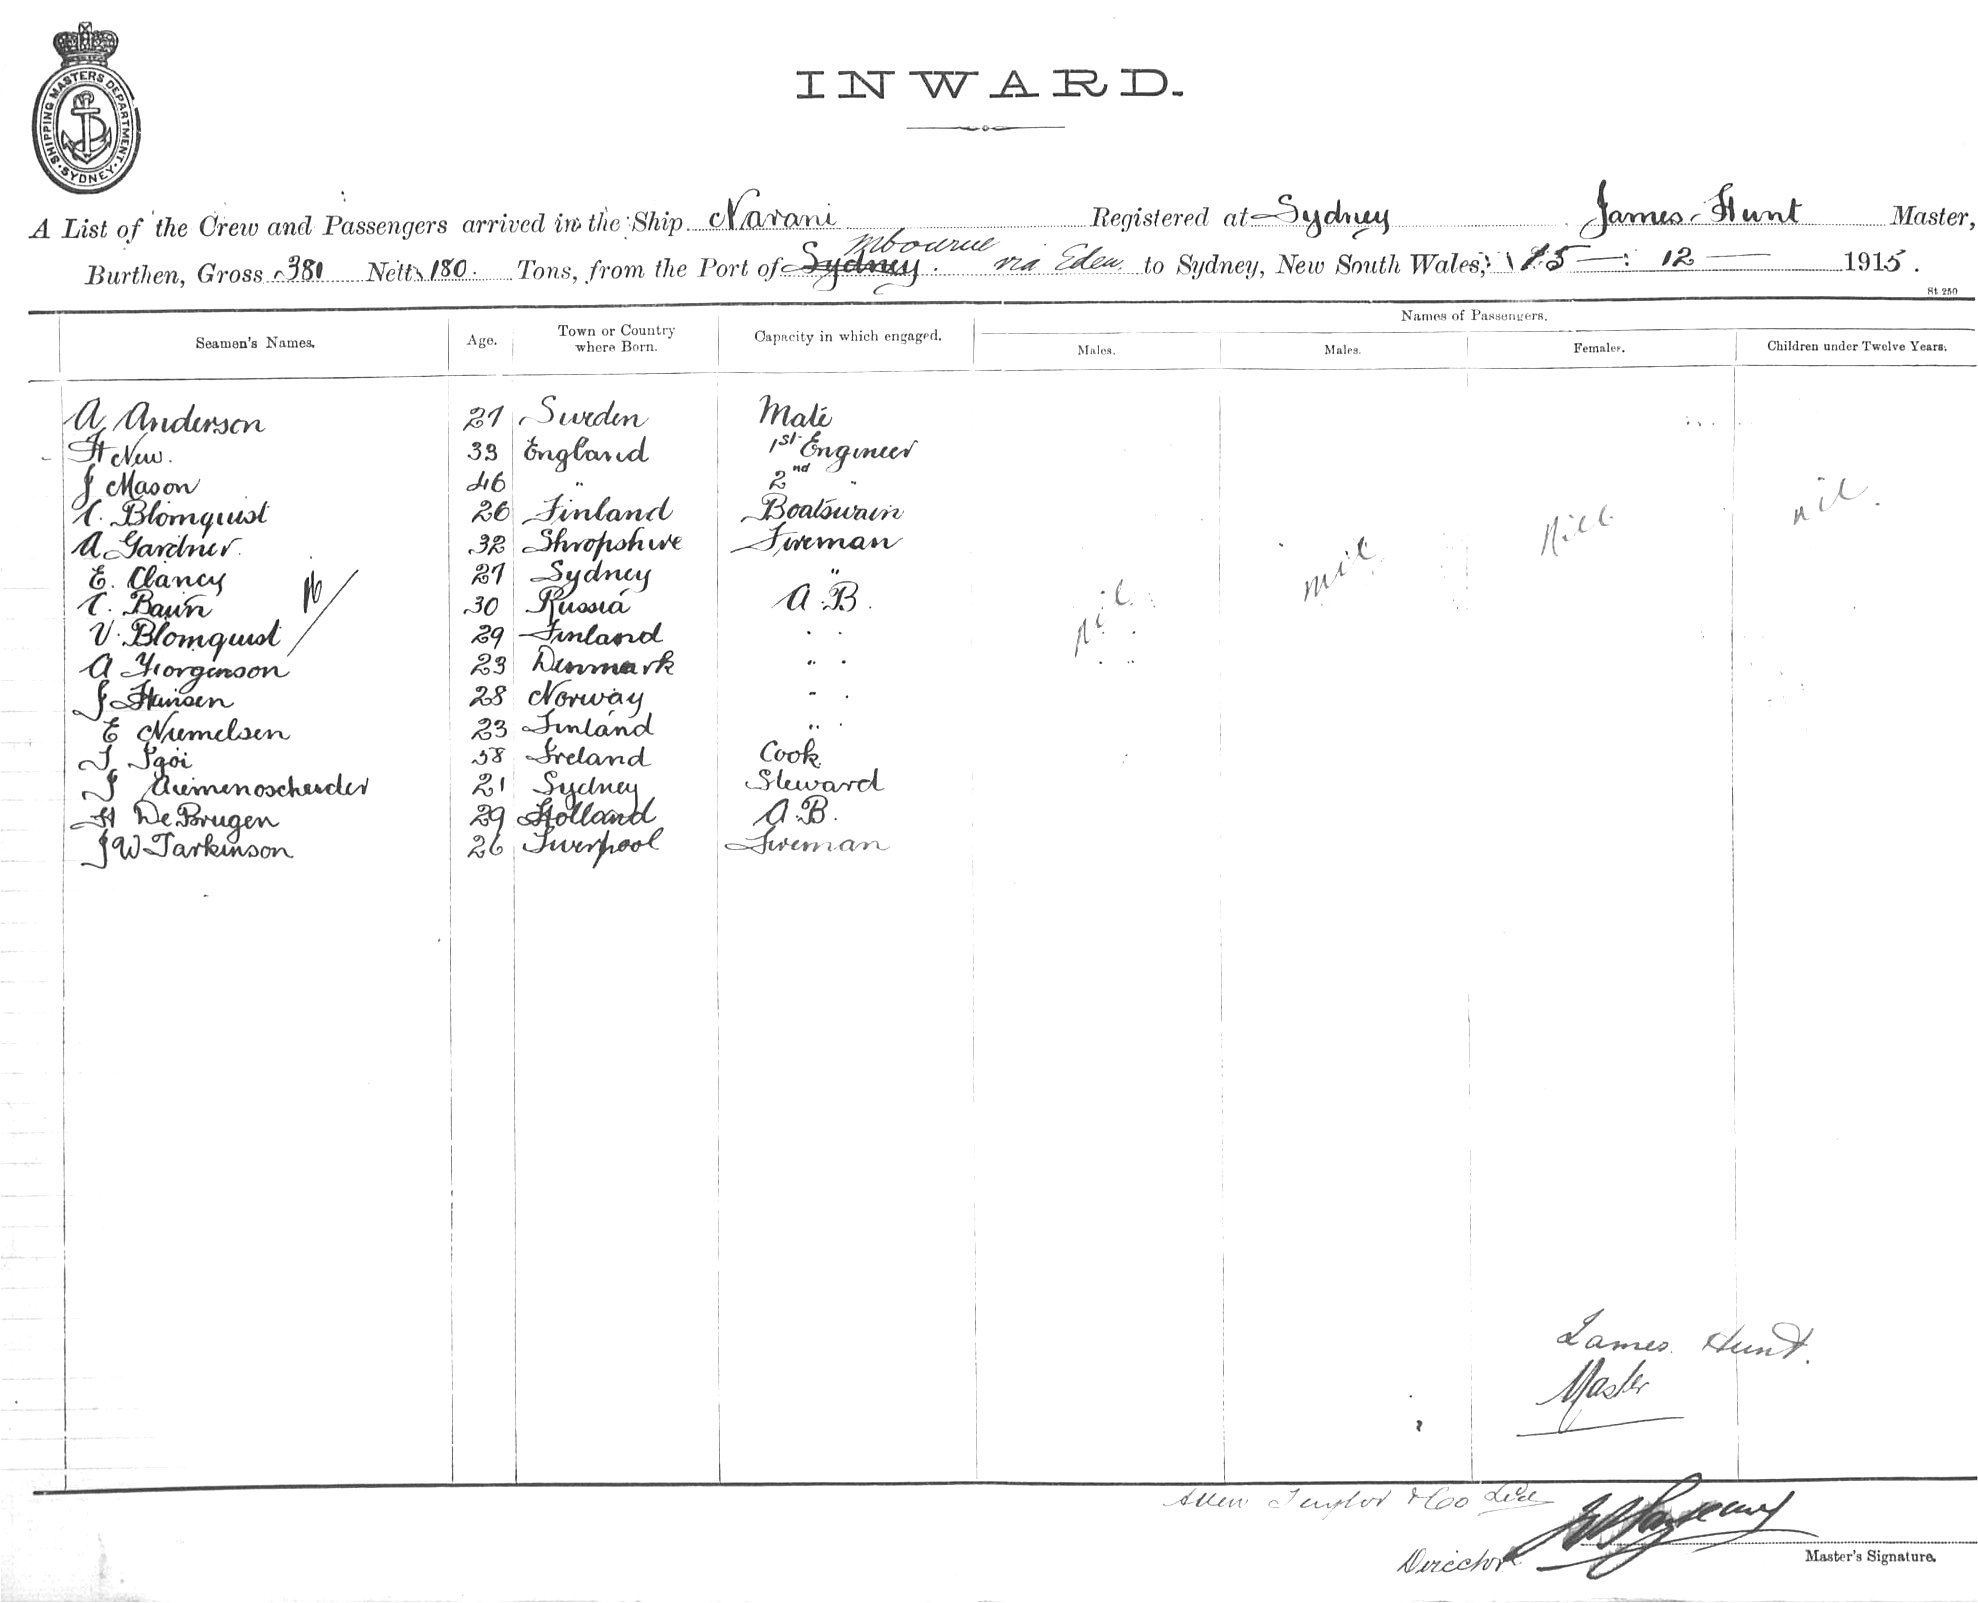 SHIPPING MASTERS DEPARTMENT
SYDNEY
INWARD.
A List of the Crew and Passengers arrived in the Ship Narani Registered at Sydney James Hunt Master,
Burthen, Gross 381 Nett 180. Tons, from the Port of Sydney Mbourne via Eden to Sydney, New South Wales, 15 — 12 — 1915.
St 250
Seamen's Names. Age. Town or Country where Born. Capacity in which engaged. Names of Passengers.
Males. Males. Females. Children under Twelve Years.
A Anderson 27 Sweden Mate
H New. 33 England 1st Engineer
J Mason 46 " 2nd "
C. Blomquist 26 Finland Boatswain
A Gardner. 32 Shropshire Fireman
E. Clancy 27 Sydney "
C. Baun 30 Russia A.B.
V. Blomquist 29 Finland " "
A Jorgenson 23 Denmark " "
J Hansen 28 Norway " "
E Niemelsen 23 Finland " "
58 Ireland Cook
J 21 Sydney Steward
H De Brugen 29 Holland A.B.
J W Parkinson 26 Liverpool Fireman
16
nil nil nill nil.
James Hunt.
Master
Allen Taylor & Co Ltd
Director
Master's Signature.